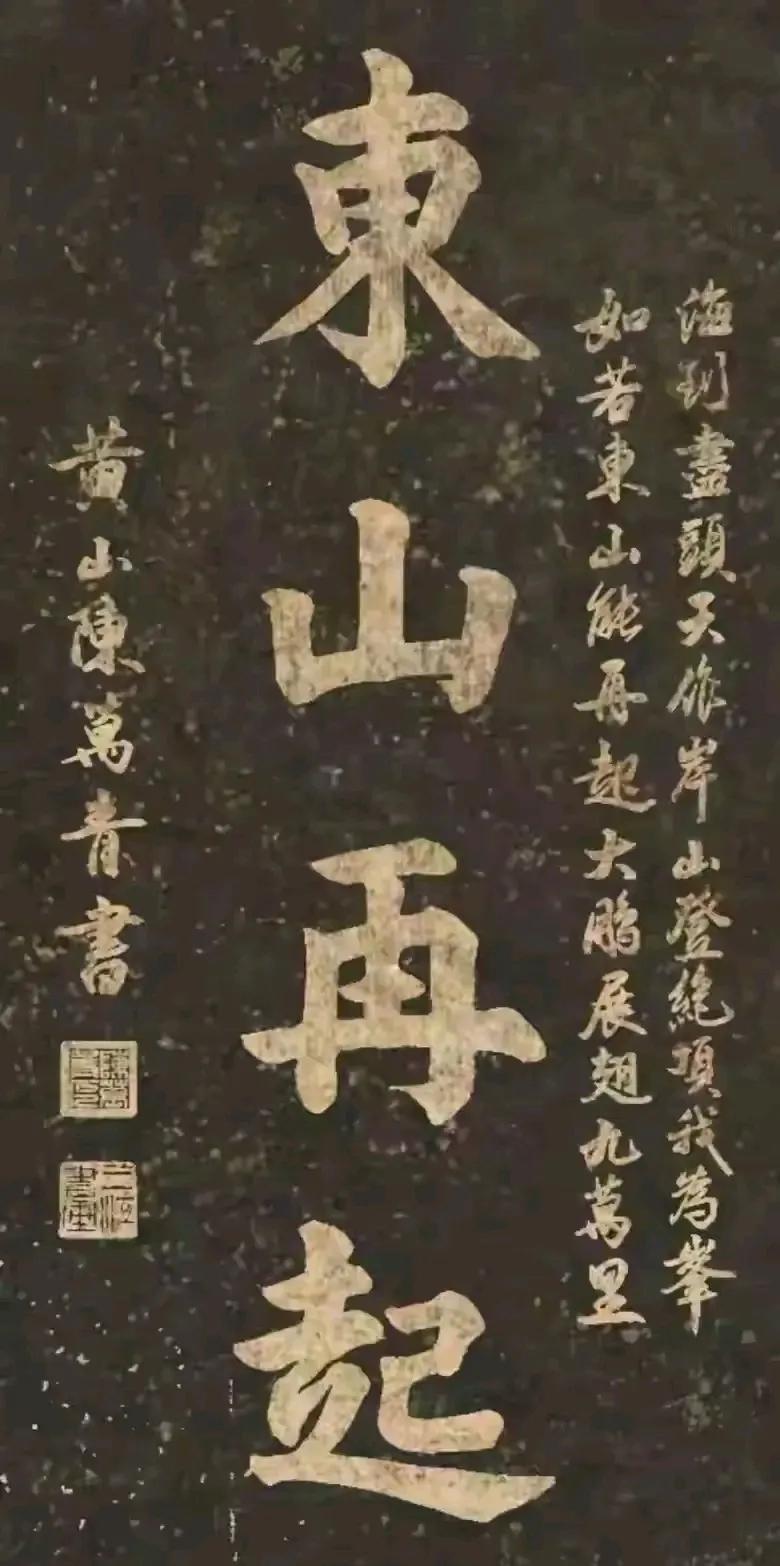 海到盡頭天作岸山登絶頂我為峯
如若東山能再起大鵬展翅九萬里
東山再起
黄山陳萬青書